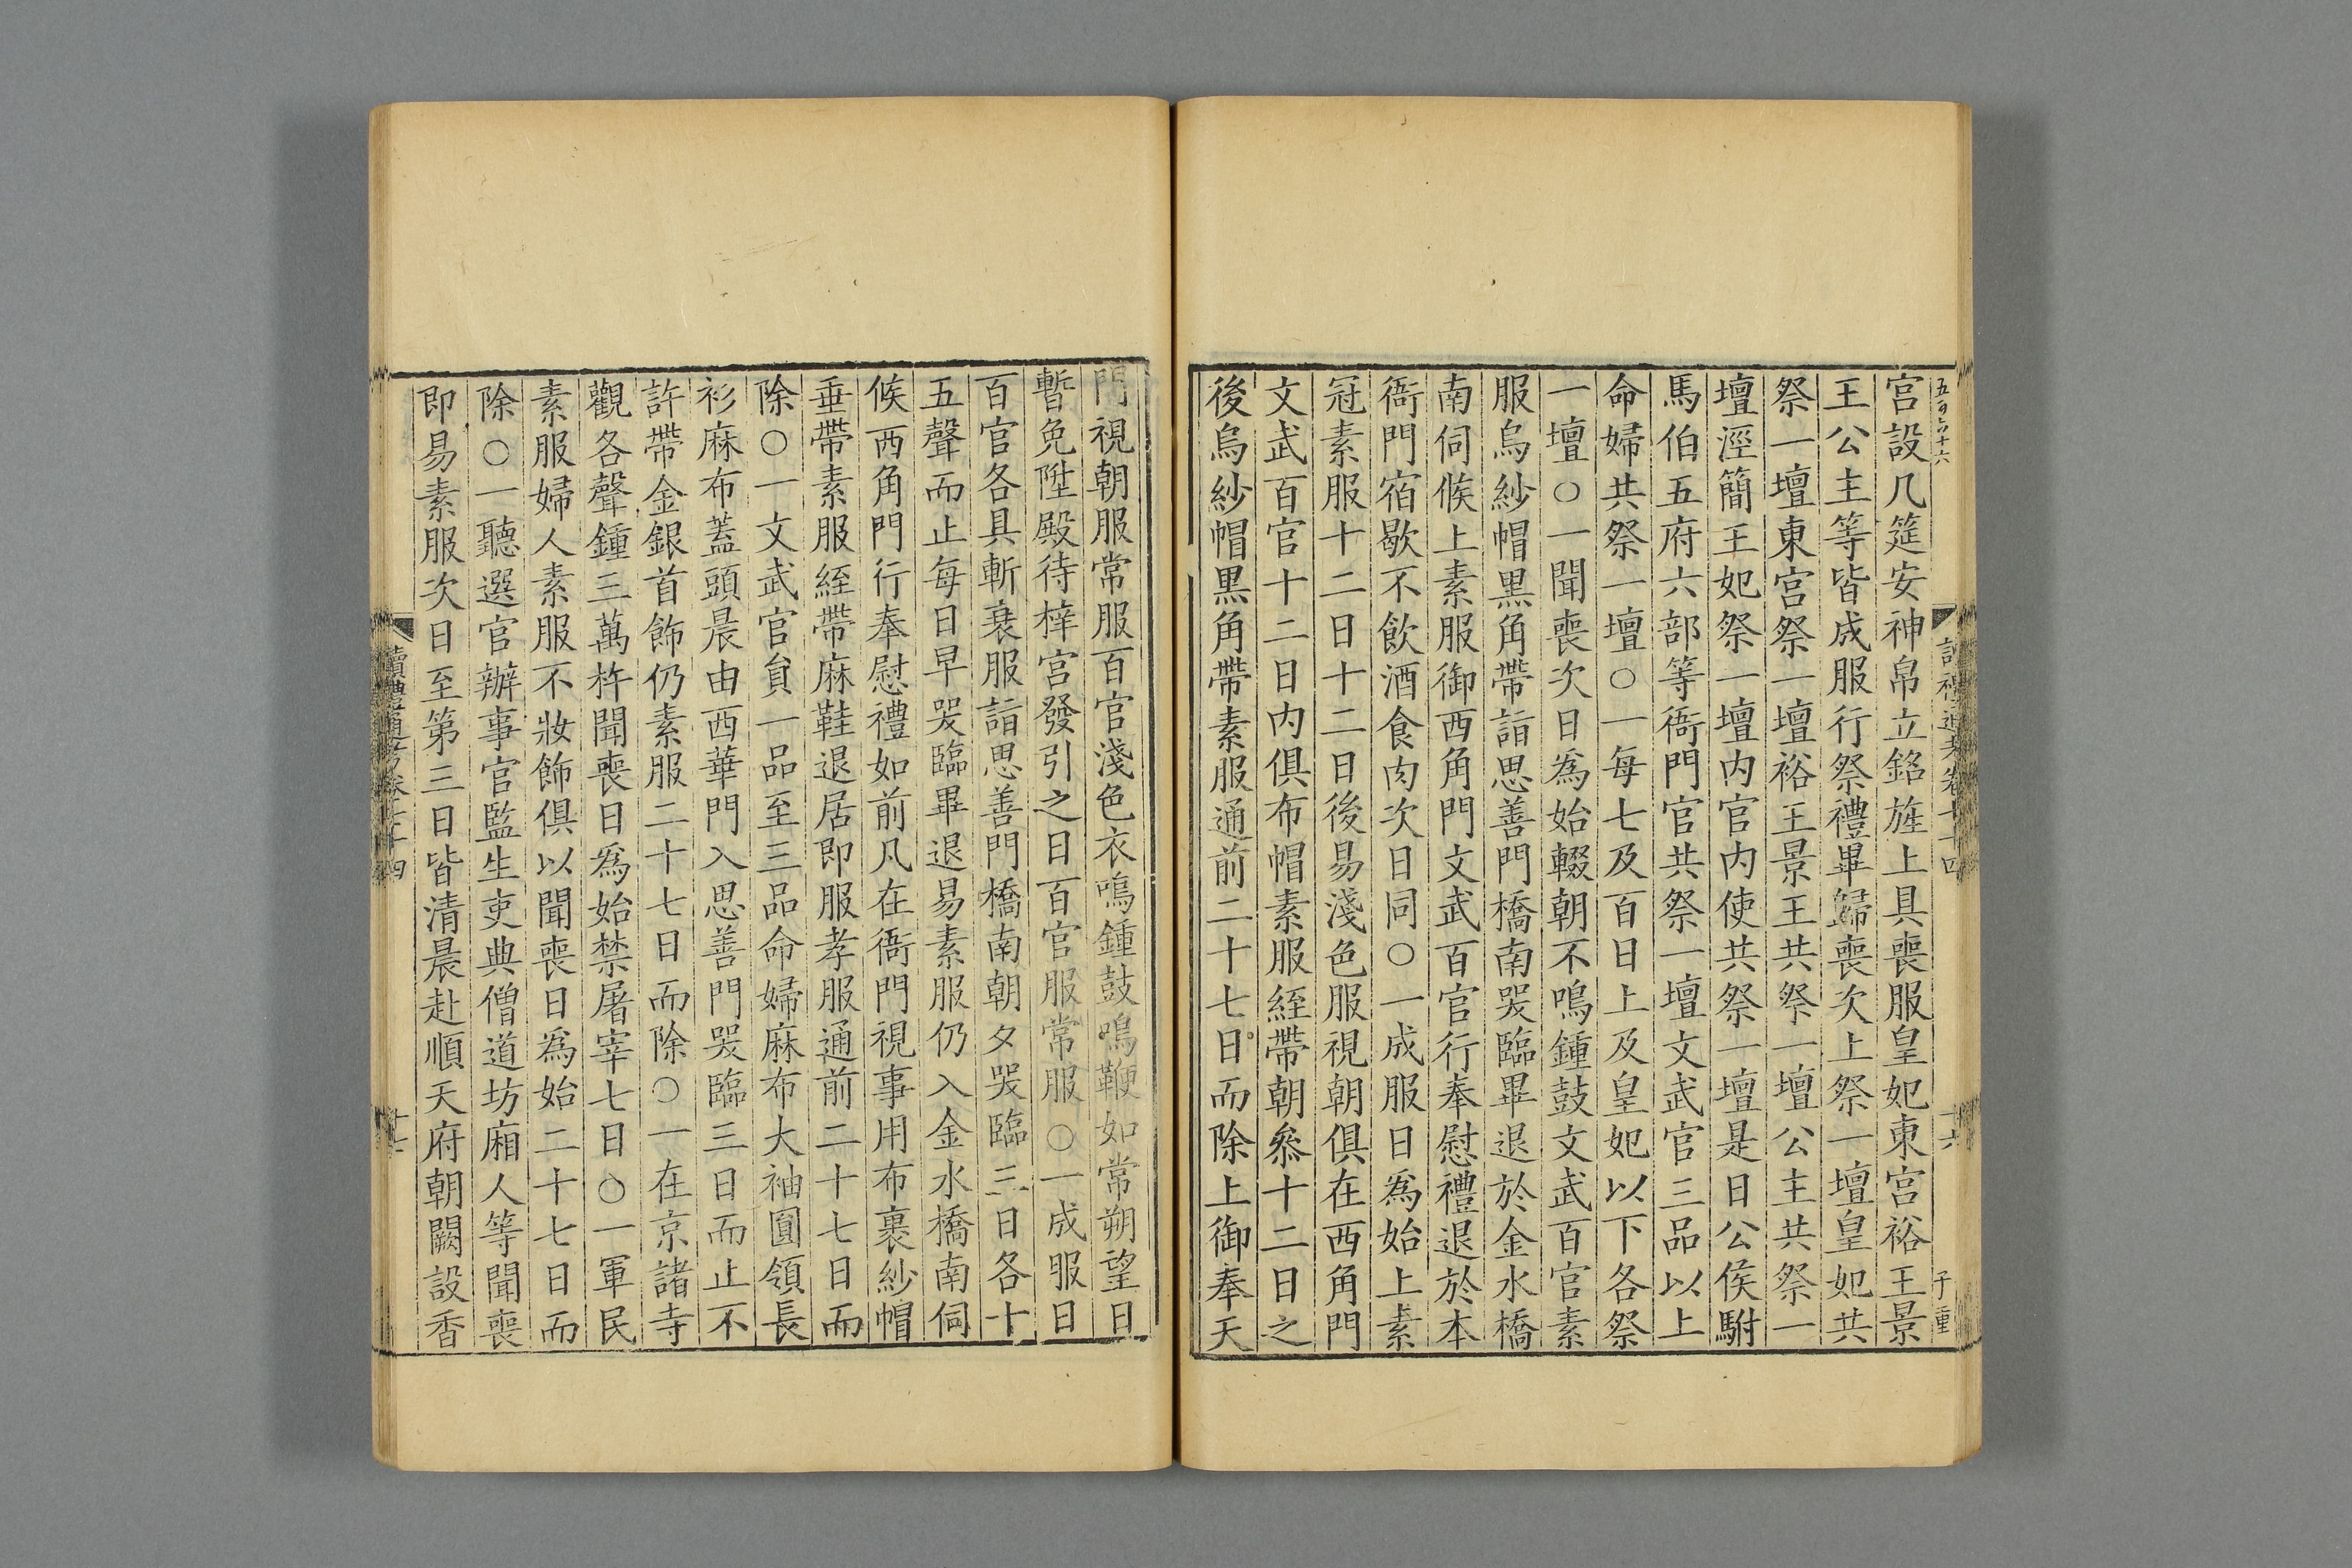 宮設几筵安神帛立銘旌上具喪服皇妃東宮裕王景
王公主等皆成服行祭禮畢歸喪次上祭一壇皇妃共
祭一壇東宮祭一壇裕王景王共祭一壇公主共祭一
壇涇簡王妃祭一壇内官内使共祭一壇是日公侯駙
馬伯五府六部等衙門官共祭一壇文武官三品以上
命婦共祭一壇○一每七及百日上及皇妃以下各祭
一壇○一聞喪次日爲始輟朝不鳴鍾鼓文武百官素
服烏紗帽黑角帶詣思善門橋南哭臨畢退於金水橋
南伺候上素服御西角門文武百官行奉慰禮退於本
衙門宿歇不飲酒食肉次日同○一成服日爲始上素
冠素服十二日十二日後易淺色服視朝俱在西角門
文武百官十二日内俱布帽素服絰帶朝叅十二日之
後烏紗帽黑角帶素服通前二十七日而除上御奉天
門視朝服常服百官淺色衣鳴鍾鼓鳴鞭如常朔望日
暫免陞殿待梓宮發引之日百官服常服○一成服日
百官各具斬衰服詣思善門橋南朝夕哭臨三日各十
五聲而止每日早哭臨畢退易素服仍入金水橋南伺
候西角門行奉慰禮如前凡在衙門視事用布裹紗帽
垂帶素服絰帶麻鞋退居即服孝服通前二十七日而
除○一文武官員一品至三品命婦麻布大袖圓領長
衫麻布蓋頭晨由西華門入思善門哭臨三日而止不
許帶金銀首飾仍素服二十七日而除○一在京諸寺
觀各聲鍾三萬杵聞喪日爲始禁屠宰七日○一軍民
素服婦人素服不妝飾俱以聞喪日爲始二十七日而
除○一聽選官辦事官監生吏典僧道坊廂人等聞喪
即易素服次日至第三日皆清晨赴順天府朝闕設香